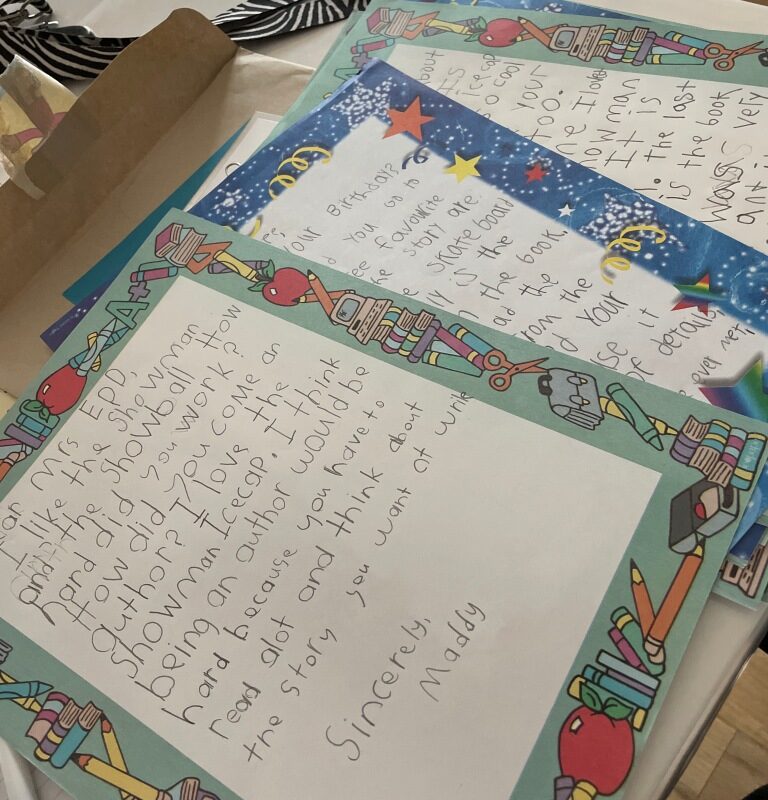 ear Mrs Epp,
I like the showman
and the showball How
hard did you work?
How did you come an
author? I love the
showman Icecap. I think
being an author would be
hard because you have to
read alot and think about
the story you want at write
Sincerely,
Maddy
your Birthday?
you go to
favourite
story are
skateboard
is the
the book.
the
from the
your
it
of details
ever
about
icecap
cool
your
too.
I love
It is
the last
is the book
was very
A+